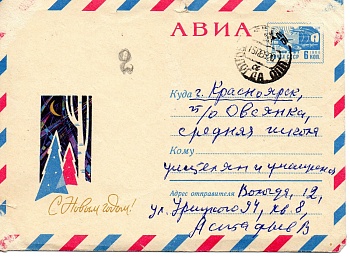 АВИА
6 КОП.
2
Куда г. Красноярск,
п/о Овсянка,
средняя школа
Кому
учителям и учащимся
Адрес отправителя Вологда, 12,
ул. Урицкого 94, кв. 8,
Астафьев В
С Новым годом!